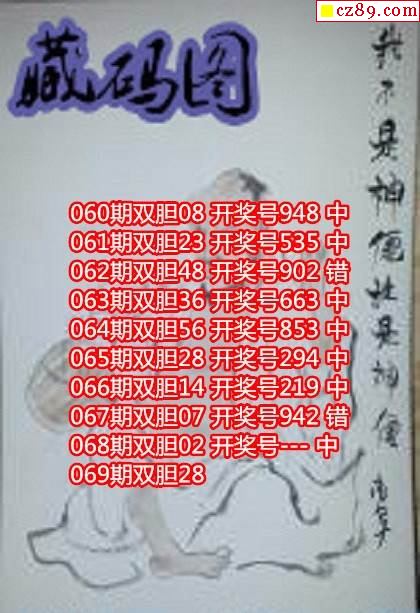 cz89.com
藏码图
060期双胆08 开奖号948 中
061期双胆23 开奖号535 中
062期双胆48 开奖号902 错
063期双胆36 开奖号663 中
064期双胆56 开奖号853 中
065期双胆28 开奖号294 中
066期双胆14 开奖号219 中
067期双胆07 开奖号942 错
068期双胆02 开奖号--- 中
069期双胆28
我不是神仙就是神仙